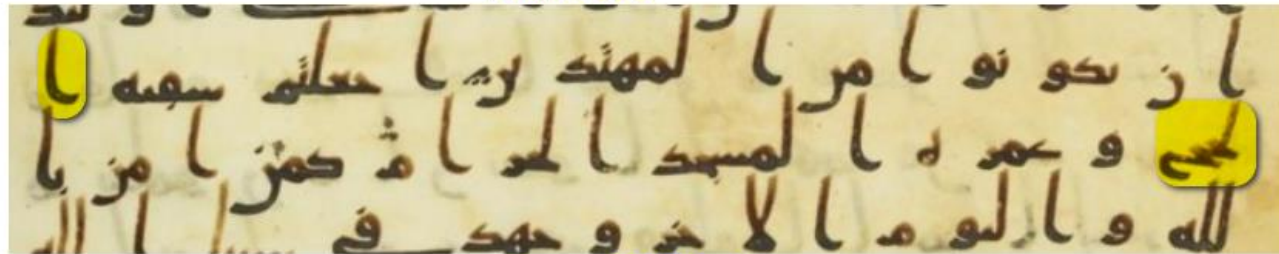 ان يكونوا من المهتدين اجعلتم سقيه ا
لحج و عمره المسجد الحرام كمن امن با
لله و اليوم الاخر و جهد في سبيل الله